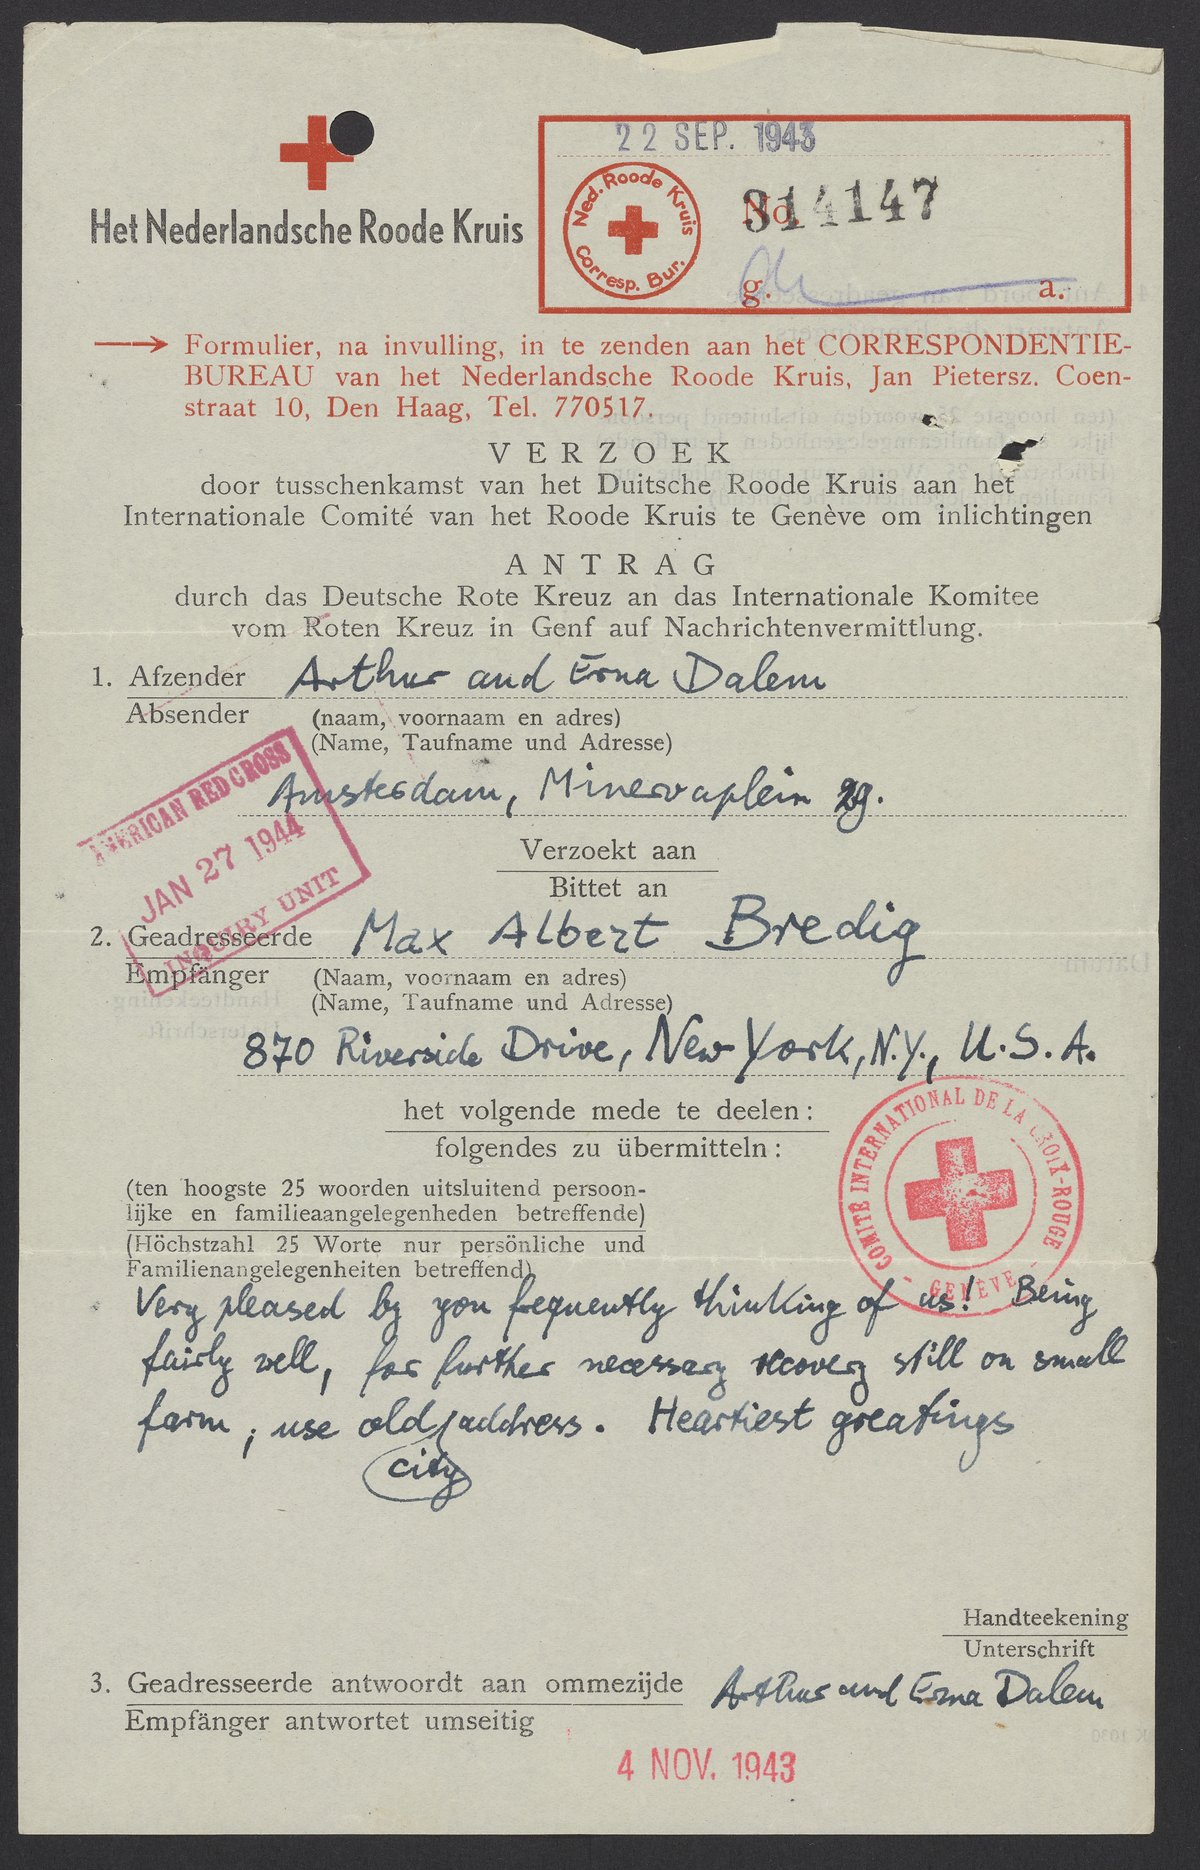 22 SEP. 1943
Het Nederlandsche Roode Kruis
Ned. Roode Kruis
Corresp. Bur.
No. 314147
g. a.
Formulier, na invulling, in te zenden aan het CORRESPONDENTIE-
BUREAU van het Nederlandsche Roode Kruis, Jan Pietersz. Coen-
straat 10, Den Haag, Tel. 770517.
VERZOEK
door tusschenkamst van het Duitsche Roode Kruis aan het
Internationale Comité van het Roode Kruis te Genève om inlichtingen
ANTRAG
durch das Deutsche Rote Kreuz an das Internationale Komitee
vom Roten Kreuz in Genf auf Nachrichtenvermittlung.
1. Afzender Arthur and Erna Dalem
Absender (naam, voornaam en adres)
(Name, Taufname und Adresse)
Amsterdam, Minervaplein 29.
AMERICAN RED CROSS
JAN 27 1944
INQUIRY UNIT
Verzoekt aan
Bittet an
2. Geadresseerde Max Albert Bredig
Empfänger (Naam, voornaam en adres)
(Name, Taufname und Adresse)
870 Riverside Drive, New York, N.Y., U.S.A.
het volgende mede te deelen:
folgendes zu übermitteln:
COMITÉ INTERNATIONAL DE LA CROIX-ROUGE
- GENÈVE -
(ten hoogste 25 woorden uitsluitend persoon-
lijke en familieaangelegenheden betreffende)
(Höchstzahl 25 Worte nur persönliche und
Familienangelegenheiten betreffend)
Very pleased by you frequently thinking of us! Being
fairly well, for further necessary recovery still on small
farm; use old address. Heartiest greatings
city
Handteekening
Unterschrift
3. Geadresseerde antwoordt aan ommezijde Arthur and Erna Dalem
Empfänger antwortet umseitig
4 NOV. 1943